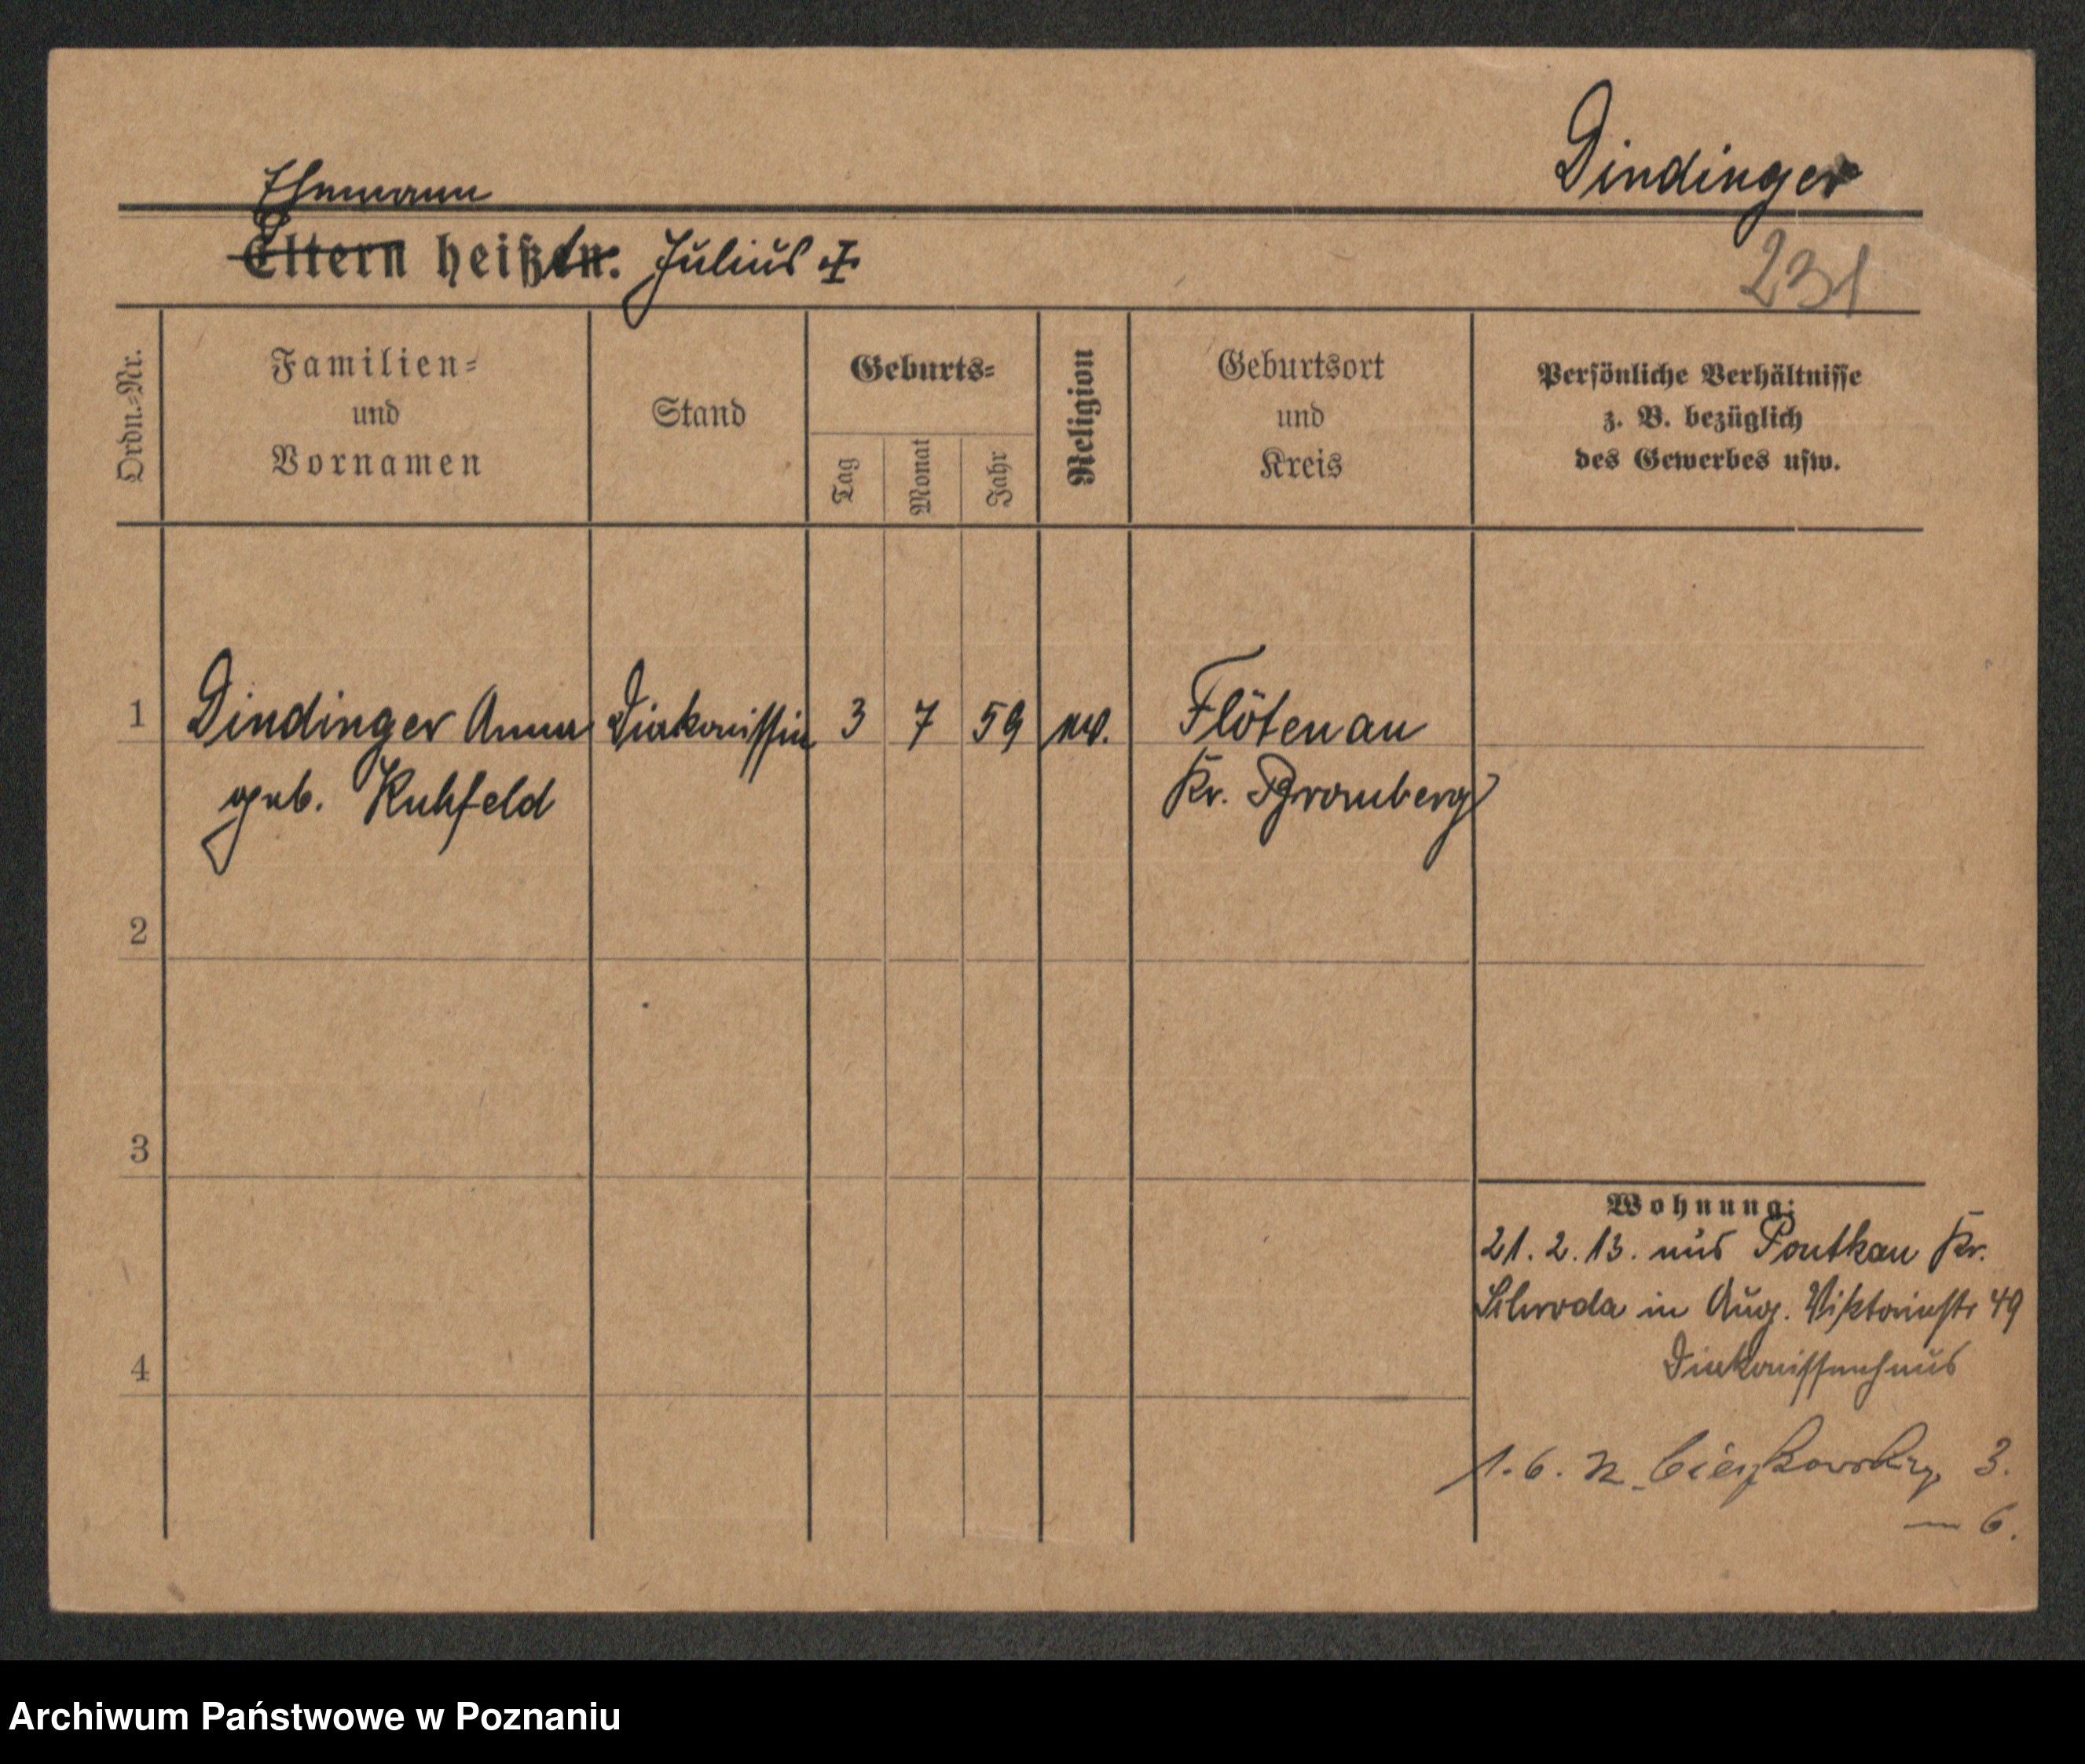 Dindinger
Ehemann
Eltern heißen: Julius
231
Ordn.=Nr.
Familien=
und
Vornamen
Stand
Geburts=
Tag
Monat
Jahr
Religion
Geburtsort
und
Kreis
Persönliche Verhältnisse
z. B. bezüglich
des Gewerbes usw.
1 Dindinger Anna Diakonissin 3 7 59 ev. Flötenau
geb. Kuhfeld Kr. Bromberg
2
3
Wohnung:
21. 2. 13. aus Pontkau Kr.
Schroda in Aug. Viktoriastr 49
4 Diakonissenhaus
1. 6. 3.
— 6.
Archiwum Państwowe w Poznaniu